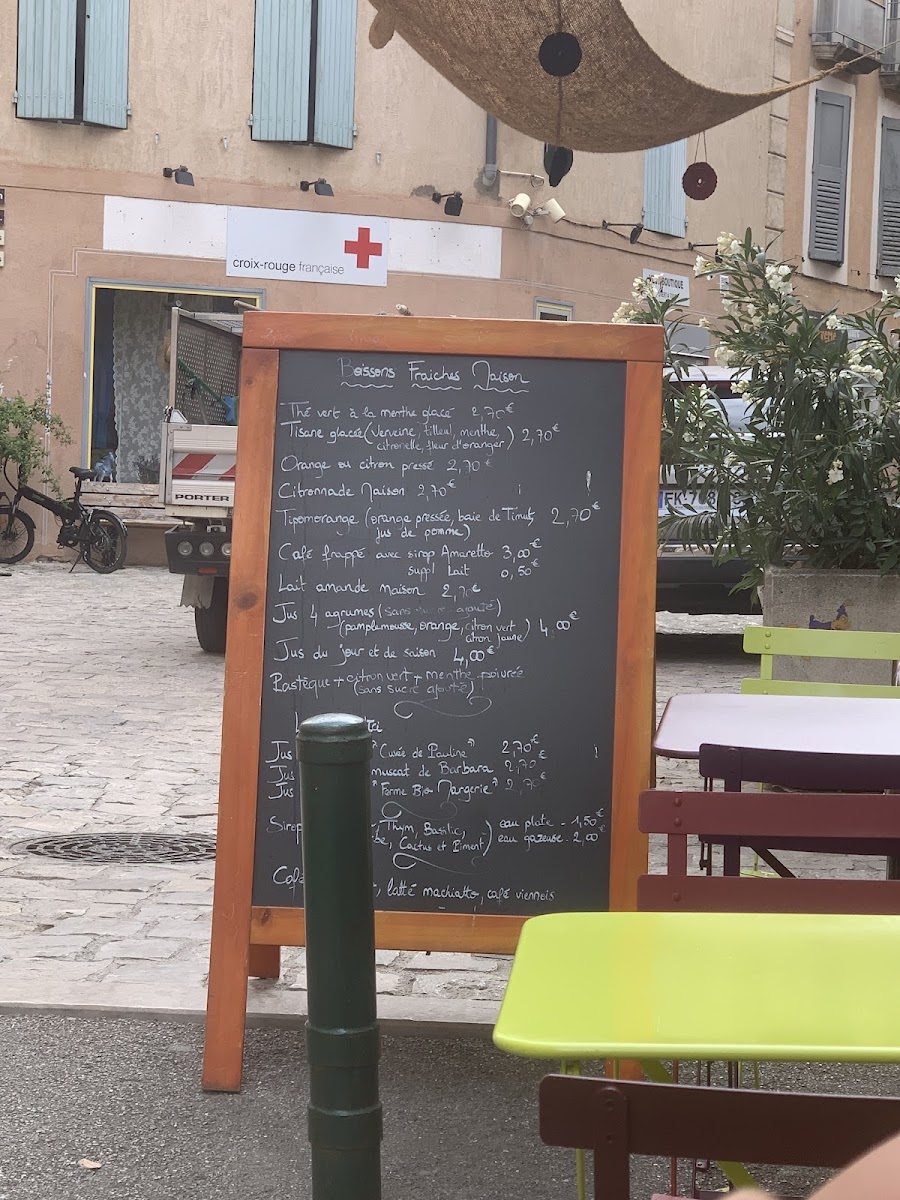 croix-rouge française
BOUTIQUE
PORTER
Boissons Fraiches Maison
Thé vert à la menthe glacé 2,70€
Tisane glacée (verveine, tilleul, menthe,
citronelle, fleur d'oranger) 2,70€
Orange ou citron pressé 2,70€
Citronnade Maison 2,70€
Tipomorange (orange pressée, baie de Timut, 2,70€
jus de pomme)
Café frappé avec sirop Amaretto 3,00€
suppl Lait 0,50€
Lait amande maison 2,70€
Jus 4 agrumes (sans sucre ajouté)
(pamplemousse, orange, citron vert
citron jaune) 4,00€
Jus du jour et de saison 4,00€
Pastèque + citron vert + menthe poivrée
(sans sucre ajouté)
Jus "Cuvée de Pauline" 2,70€
Jus muscat de Barbara 2,70€
Jus "Ferme Bio Margerie" 2,70€
Sirop Thym, Basilic, eau plate - 1,50€
Cactus et Piment) eau gazeuse - 2,00€
Café latté machiatto, café viennois